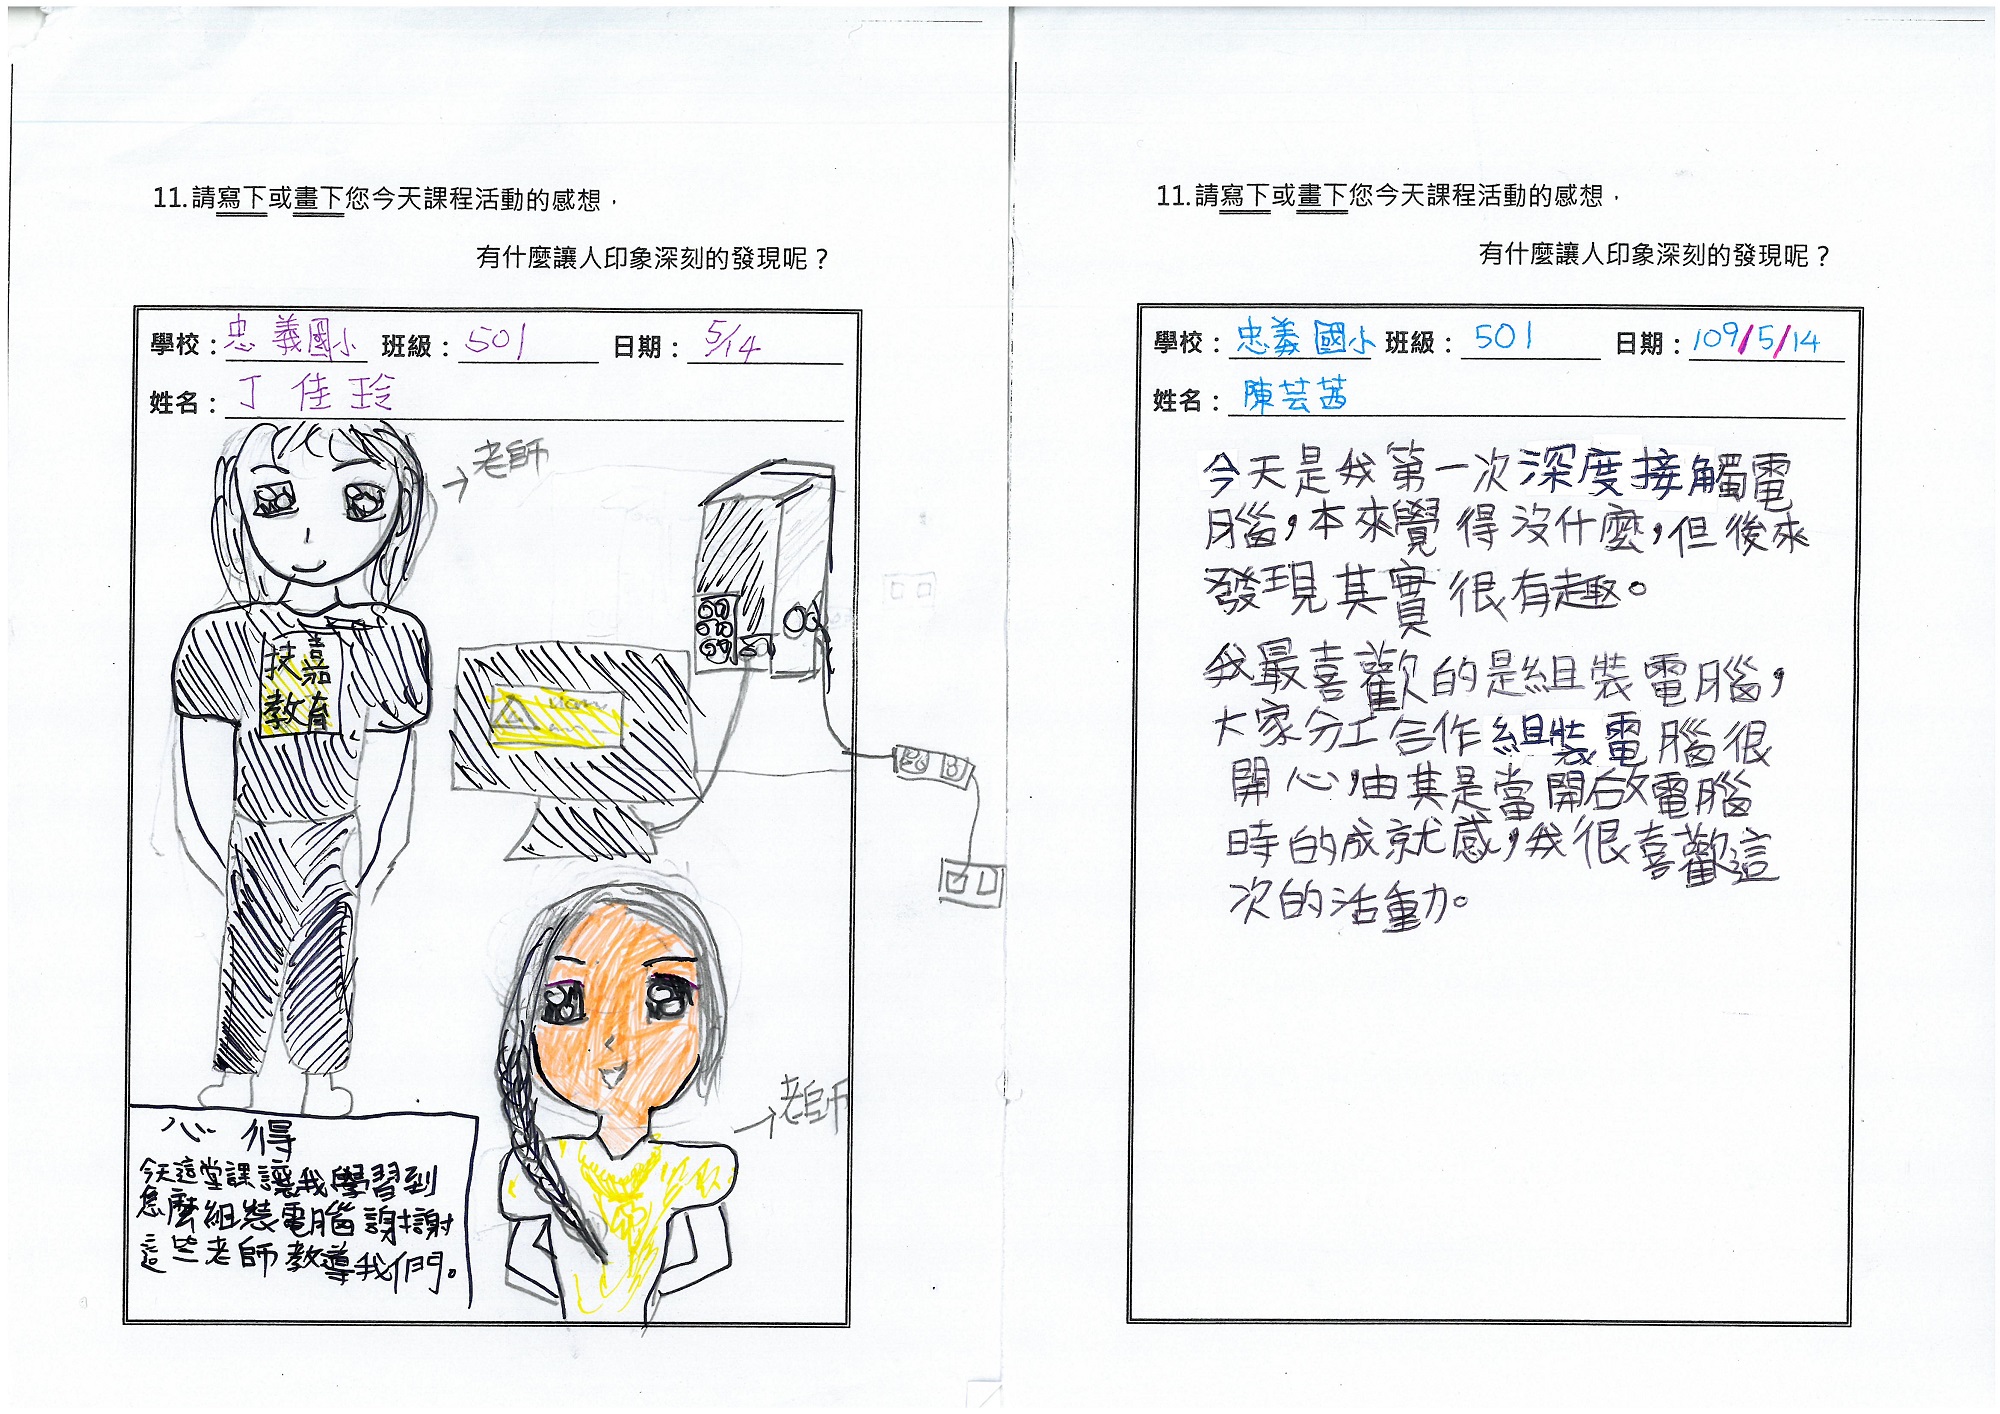 11.請寫下或畫下您今天課程活動的感想，
有什麼讓人印象深刻的發現呢？
學校：忠義國小 班級：501 日期：5/14
姓名：丁佳玲
→老師
扶嘉
教育
→老師
心得
今天這堂課讓我學習到
怎麼組裝電腦謝謝
這些老師教導我們。
11.請寫下或畫下您今天課程活動的感想，
有什麼讓人印象深刻的發現呢？
學校：忠義國小 班級：501 日期：109/5/14
姓名：陳芸茜
今天是我第一次深度接觸電
腦，本來覺得沒什麼，但後來
發現其實很有趣。
我最喜歡的是組裝電腦，
大家分工合作組裝電腦很
開心，由其是當開啟電腦
時的成就感，我很喜歡這
次的活動。